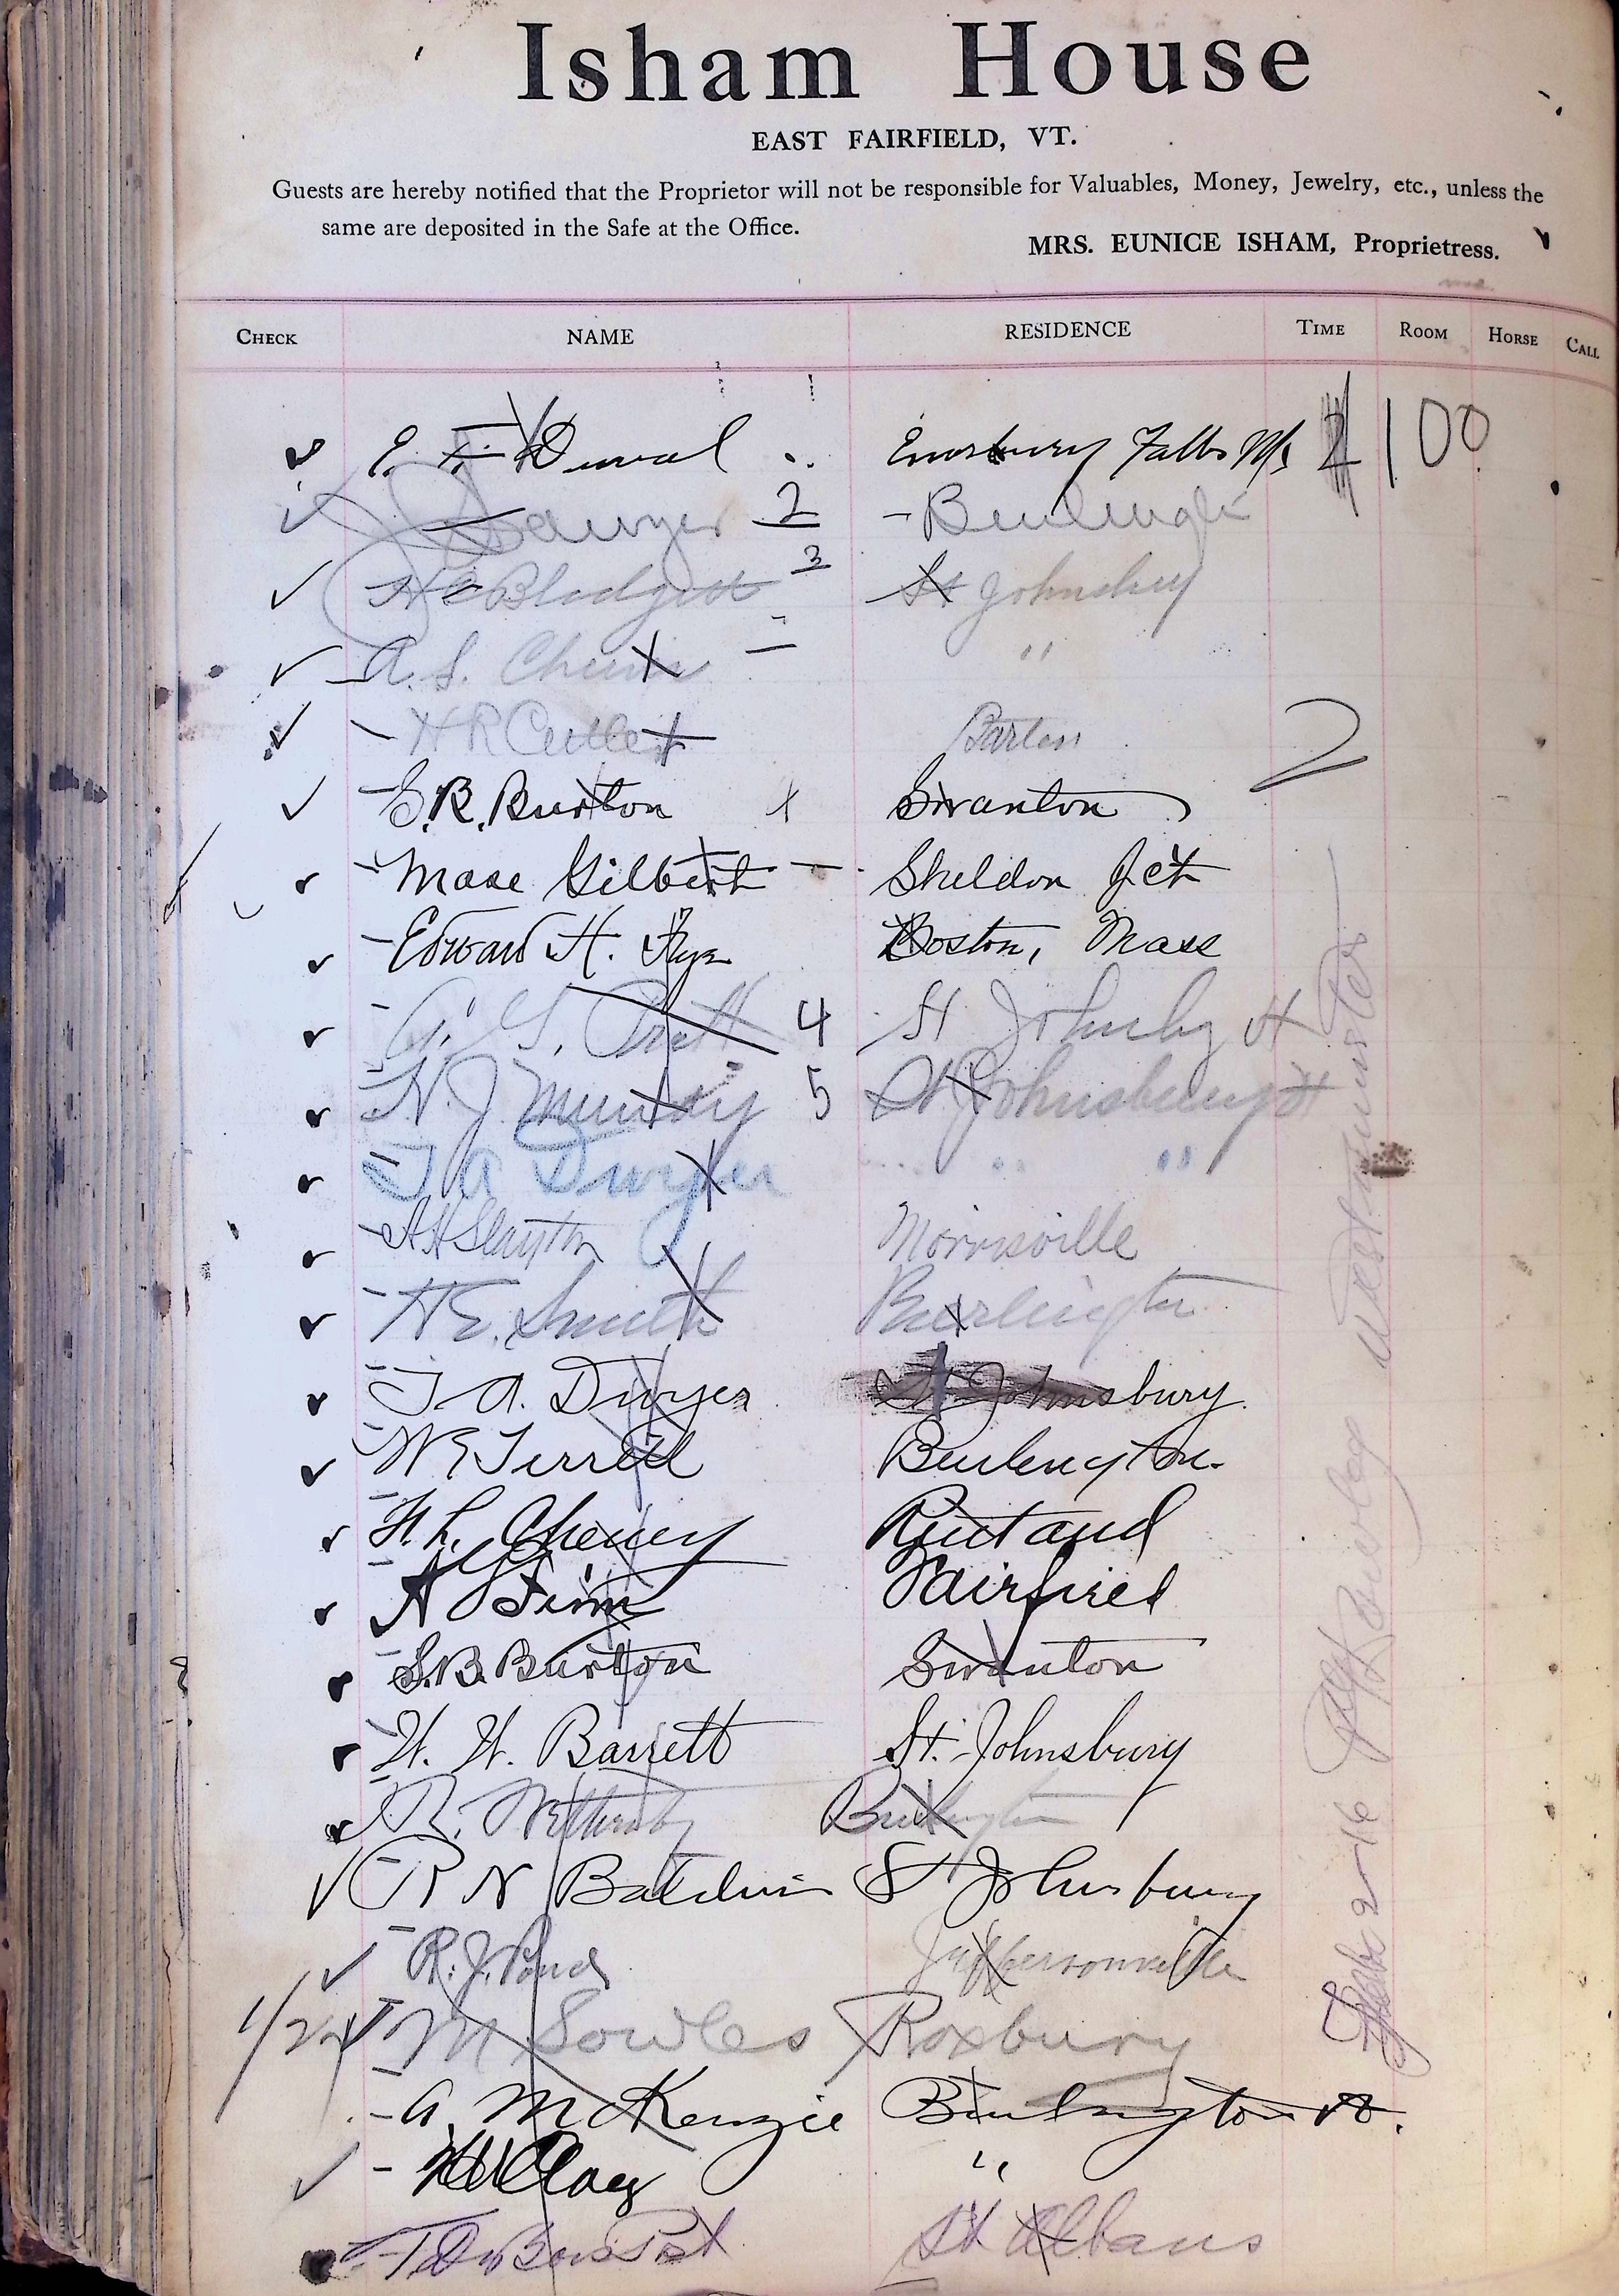 Isham House
EAST FAIRFIELD, VT.
Guests are hereby notified that the Proprietor will not be responsible for Valuables, Money, Jewelry, etc., unless the
same are deposited in the Safe at the Office.
MRS. EUNICE ISHAM, Proprietress.
CHECK NAME RESIDENCE TIME ROOM HORSE CALL
E. F. Duval Enosburg Falls 100
Sawyer 2
H E Blodgett 3 St Johnsbury
A. S. "
H R Cutler Barton 2
S. B. Burton Swanton
Mase Gilbert Sheldon Jct
Edward H. Boston, Mass
G. S. Pratt 4 St Johnsby Vt
N. J. Munsey 5 St Johnsbury Vt
T A Dwyer " "
A H Slayton Morrisville
H E. Smith Burlington
T. A. Dwyer St Johnsbury.
W E Terrill Burlington.
H. L. Cheney Rutland
A G Finn Fairfield
S. B. Burton Swanton
W. W. Barrett St. Johnsbury
R. Wetherby Burlington
R N Baldwin St Johnsbury
R. J. Pond Jeffersonville
1/2 M Sowles Roxbury
A. McKenzie Burlington Vt.
"
St Albans
Westminster